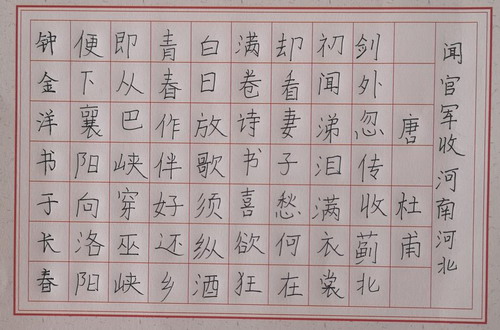 闻官军收河南河北
唐 杜甫
剑外忽传收蓟北
初闻涕泪满衣裳
却看妻子愁何在
满卷诗书喜欲狂
白日放歌须纵酒
青春作伴好还乡
即从巴峡穿巫峡
便下襄阳向洛阳
钟金洋书于长春